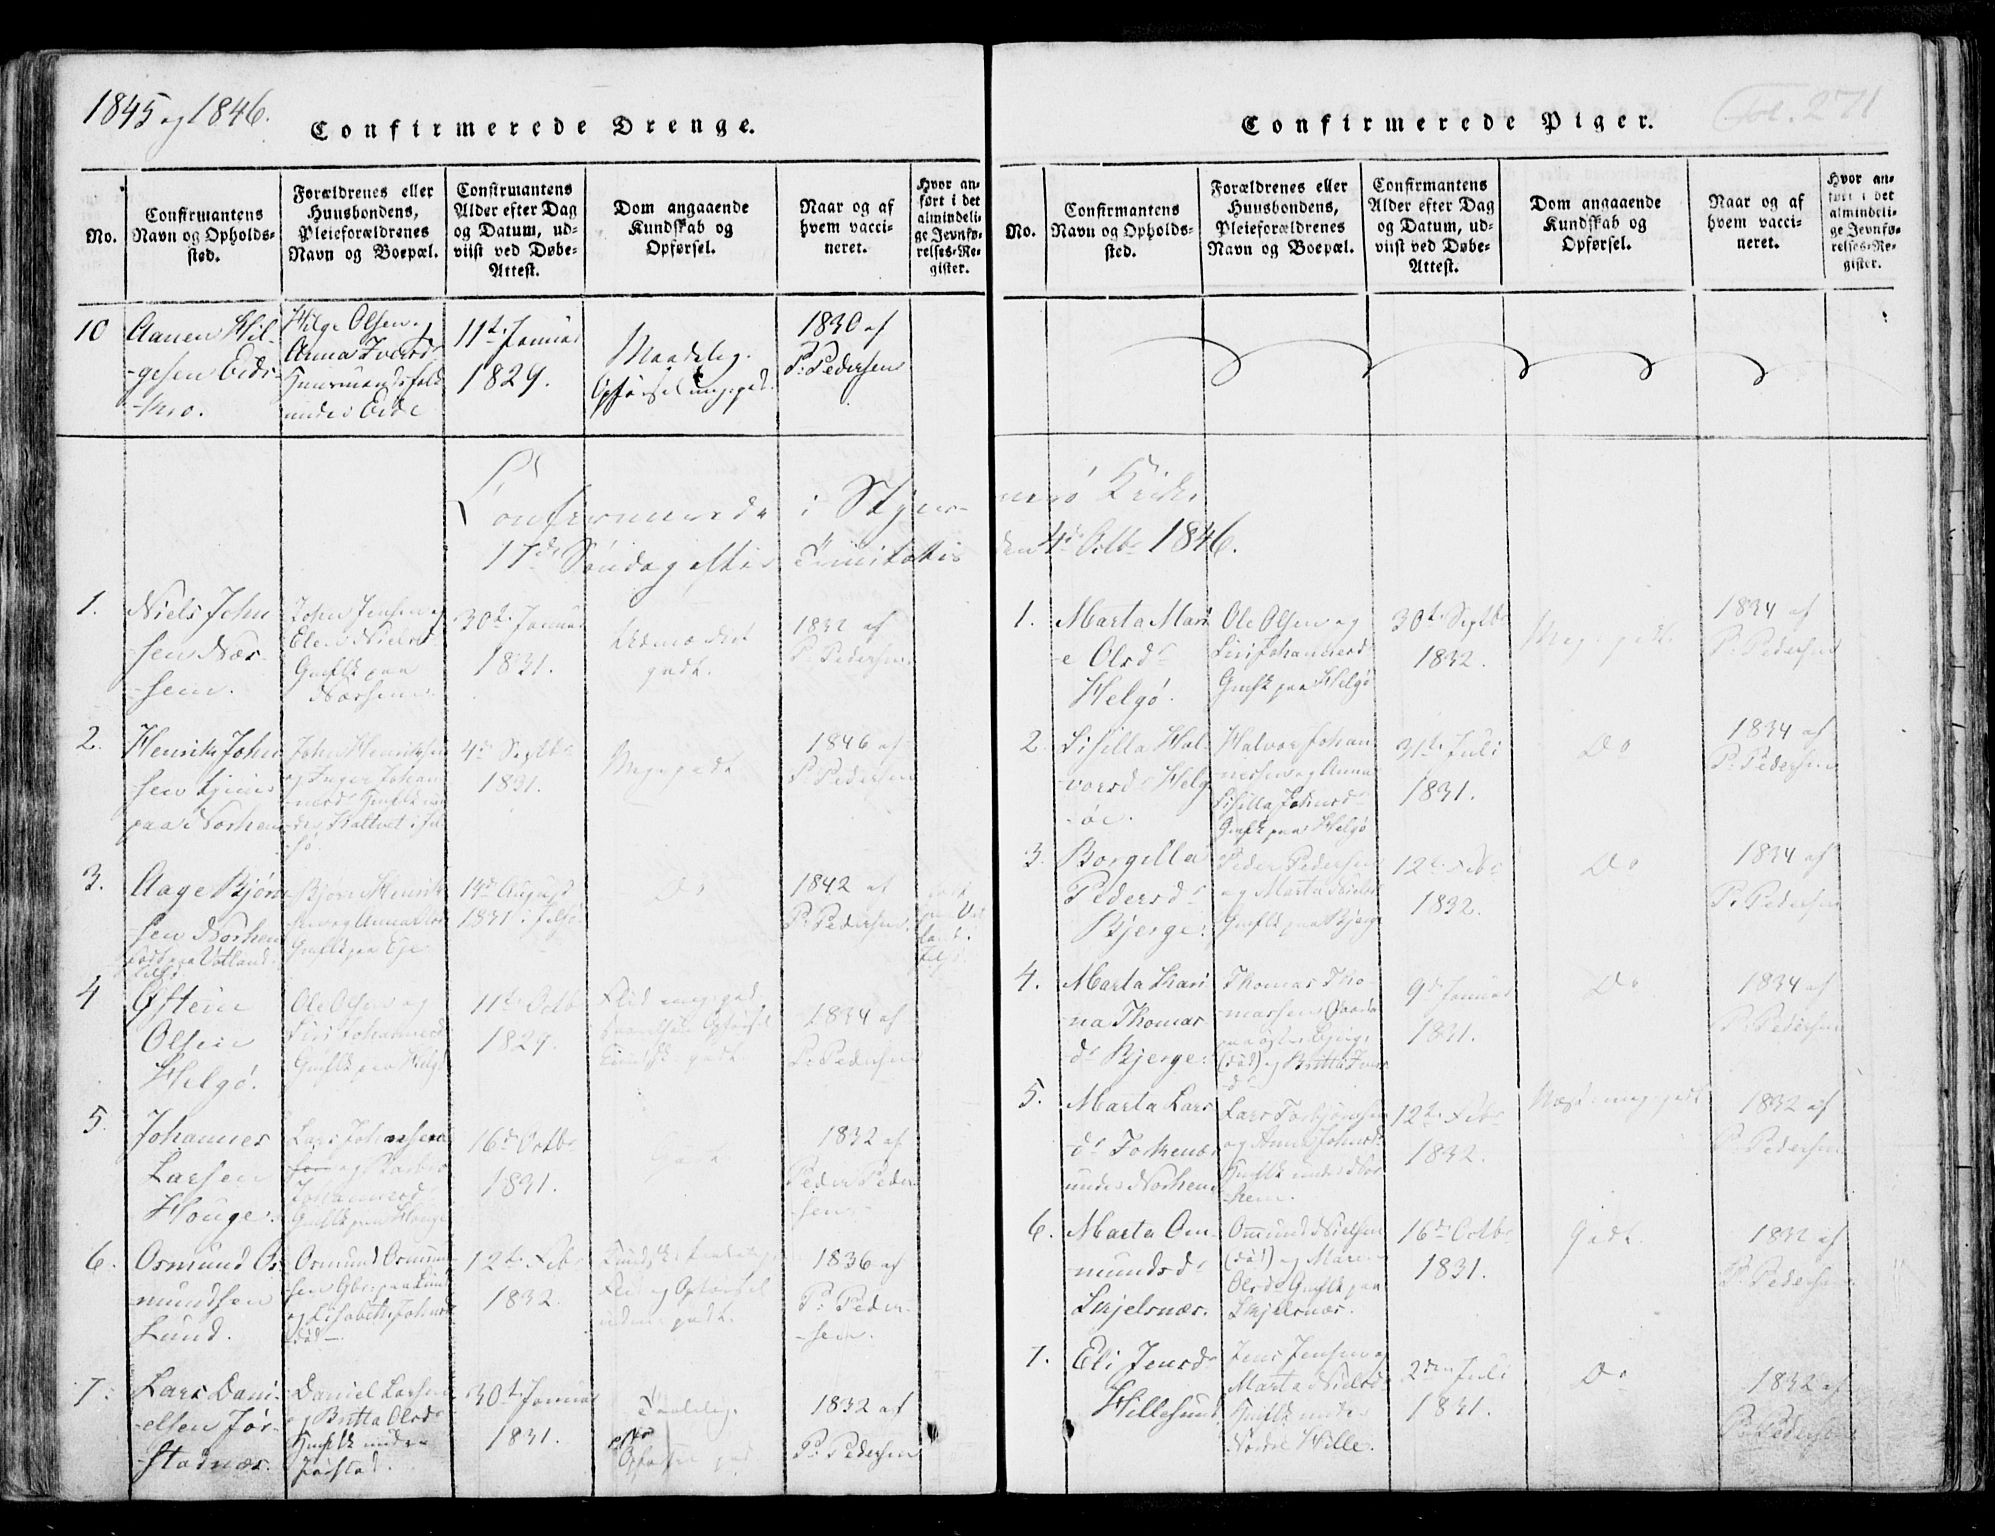 1845 og 1846.
Confirmerede Drenge.
No.
Confirmantens
Navn og Opholds-
sted.
Forældrenes eller
Huusbondens,
Pleieforældrenes
Navn og Boepæl.
Confirmantens
Alder efter Dag
og Datum, ud-
viist ved Døbe-
Attest.
Dom angaaende
Kundskab og
Opførsel.
Naar og af
hvem vacci-
neret.
Hvor an-
ført i det
almindeli-
ge Jevnfø-
relses-Re-
gister.
10
Aanen Hil-
-gesen Eids-
Hilge Olsen
Anna Iversd
Huusmandsfolk
under Eide
11te Januar
1829.
Maadelig.
Opførsel meg. god.
1830 af
P. Pedersen
Confirmerede i Stjer-
17de Søndag efter Trinitatis
1.
Niels John
sen Nær-
-sem.
John Jensen og
Elen Nielsd
Gmflk paa
Nærsem.
30te Januar
1831.
Udmærket
godt.
1832 af
P. Pedersen
2.
Henrik John
sen tjener
paa Norhem
John Henriksen
og Inger Johan
nesd Hmflk un
4de Septbr
1831.
Megegodt
1846 af
P. Pedersen
3.
Aage Bjørn
sen Norhem
født paa Votland
Bjørn Henrik
sen og Anna
Gmflk paa Eje
14de August
1831 i Jelsø
Do
1842 af
P. Pedersen
4
Østein
Olsen
Helgø.
Ole Olsen og
Siri Johannesd
Gmflk paa Helgø
11te Octbr
1829.
Flid meg. god
godt.
1834 af
P. Pedersen
5.
Johannes
Larsen
Houge.
Lars Johansen
Johannesd
Gmflk paa Houge
16de Octbr
1831.
Godt
1832 af
Peder Peder
-sen.
6.
Osmund Os
mundsen
Lund.
Osmund Osmun
sen Gbr. paa Lund
og Lisabeth Johnsd
død -
12te Febr
1832.
Flid og Opførsel
godt.
1836 af
P. Peder-
-sen.
7.
Lars Dani-
-elsen Jør-
-stadnæs.
Daniel Larsen
og Britta Olsdr
Hmflk under
Jørstad.
30te Januar
1831.
Taalelig.
Opførsel god
1832 af
P. Pedersen
Confirmerede Piger.
Fol. 271
No.
Confirmantens
Navn og Opholds-
sted.
Forældrenes eller
Huusbondens,
Pleieforældrenes
Navn og Boepæl.
Confirmantens
Alder efter Dag
og Datum, ud-
viist ved Døbe-
Attest.
Dom angaaende
Kundskab og
Opførsel.
Naar og af
hvem vacci-
neret.
Hvor an-
ført i det
almindeli-
ge Jevnfø-
relses-Re-
gister.
nerø Kirke
den 4de Octbr 1846.
1.
Marta Mari
e Olsdr
Helgø.
Ole Olsen og
Siri Johannesd
Gmflk paa Helgø
30te Septbr
1832.
Meg. godt.
1834 af
P. Pedersen
2.
Lisilla Hal-
vorsdr Helg
-øe.
Halvor Johan
nessen og Anna
Lisilla Johnsdr
Gmflk paa Helgø
31te Juli
1831.
Do
1834 af
P. Pedersen
3.
Borgilla
Pedersdr
Bjerge.
Peder Pedersen
og Marta Nielsd
Gmflk paa Bjerge
12te Febr
1832.
Do
1834 af
P. Pedersen
4.
Marta Kari
na Thomas
dr Bjerge.
Thomas Tho
massen
(død) og Britta Ivers
dr
9de Januar
1831.
Do
1834 af
P. Pedersen
5.
Marta Lars
dr Torkenæs
under Norhem
Lars Torbjørnsen
og Anna Johnsd
Hmflk under Nor
hem.
12te Febr
1832.
Næst meg. godt
1832 af
P. Pedersen
6.
Marta Om-
mundsdr
Skjelsnæs.
Ommund Nielsen
(død) og Maren
Olsdr Gmflk paa
Skjelsnæs.
16de Octbr
1831.
Godt.
1832 af
P. Pedersen
7.
Eli Jensdr
Hillesund
Jens Jensen og
Marta Nielsdr
Hmflk under
Nordre Hille.
2den Juli
1831.
Do
1832 af
P. Pedersen